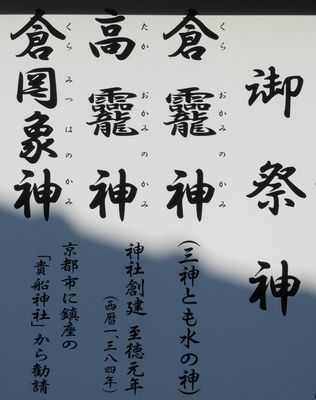 御祭神
倉龗神
くら おかみのかみ
高龗神
たか おかみのかみ
倉罔象神
くらみつはのかみ
(三神とも水の神)
神社創建 至徳元年
(西暦一、三八四年)
京都市に鎮座の
「貴船神社」から勧請